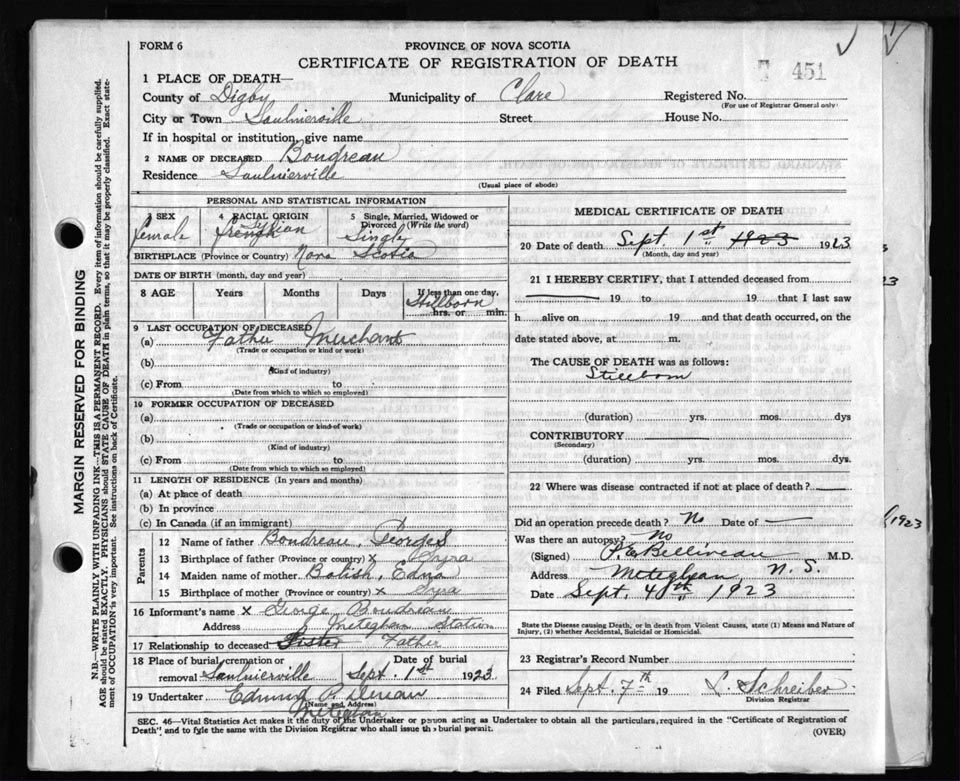 FORM 6
PROVINCE OF NOVA SCOTIA
CERTIFICATE OF REGISTRATION OF DEATH
451
1 PLACE OF DEATH—
County of Digby Municipality of Clare Registered No.
(For use of Registrar General only)
City or Town Saulnierville Street House No.
If in hospital or institution, give name
2 NAME OF DECEASED Boudreau
Residence Saulnierville
(Usual place of abode)
PERSONAL AND STATISTICAL INFORMATION
3 SEX female
4 RACIAL ORIGIN french
5 Single, Married, Widowed or Divorced (Write the word) Single
BIRTHPLACE (Province or Country) Nova Scotia
DATE OF BIRTH (month, day and year)
8 AGE Years Months Days If less than one day, hrs. or min. Stillborn
9 LAST OCCUPATION OF DECEASED
(a) Father Merchant
(Trade or occupation or kind of work)
(b)
(Kind of industry)
(c) From to
(Date from which to which so employed)
10 FORMER OCCUPATION OF DECEASED
(a)
(Trade or occupation or kind of work)
(b)
(Kind of industry)
(c) From to
(Date from which to which so employed)
11 LENGTH OF RESIDENCE (In years and months)
(a) At place of death
(b) In province
(c) In Canada (if an immigrant)
Parents
12 Name of father Boudreau, Georges
13 Birthplace of father (Province or country) x
14 Maiden name of mother Edna
15 Birthplace of mother (Province or country) x Syra
16 Informant's name x George Boudreau
Address Meteghan Station
17 Relationship to deceased Sister Father
18 Place of burial, cremation or removal Saulnierville Date of burial Sept. 1st 1923
19 Undertaker Edmund
(Name and Address)
Meteghan
MEDICAL CERTIFICATE OF DEATH
20 Date of death Sept 1st 1923 1923
(Month, day and year)
21 I HEREBY CERTIFY, that I attended deceased from
19 to 19 that I last saw
h alive on 19 and that death occurred, on the
date stated above, at m.
The CAUSE OF DEATH was as follows:
Stillborn
(duration) yrs. mos. dys
CONTRIBUTORY
(Secondary)
(duration) yrs. mos. dys.
22 Where was disease contracted if not at place of death?
Did an operation precede death? No Date of —
Was there an autopsy? No
(Signed) P.E. Belliveau M.D.
Address Meteghan, N.S.
Date Sept. 4th 1923
State the Disease causing Death, or in death from Violent Causes, state (1) Means and Nature of Injury, (2) whether Accidental, Suicidal or Homicidal.
23 Registrar's Record Number
24 Filed Sept. 7th 19 L. Schreiber
Division Registrar
SEC. 46—Vital Statistics Act makes it the duty of the Undertaker or person acting as Undertaker to obtain all the particulars, required in the "Certificate of Registration of
Death" and to file the same with the Division Registrar who shall issue the burial permit. (OVER)
MARGIN RESERVED FOR BINDING
N.B.—WRITE PLAINLY WITH UNFADING INK—THIS IS A PERMANENT RECORD. Every item of information should be carefully supplied.
AGE should be stated EXACTLY. PHYSICIANS should STATE CAUSE OF DEATH in plain terms, so that it may be properly classified. Exact state-
ment of OCCUPATION is very important. See instructions on back of Certificate.
23
1923